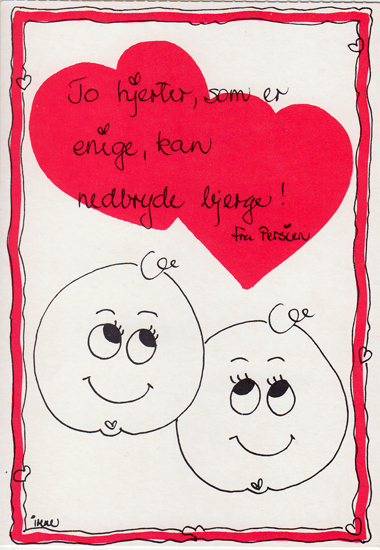 To hjerter, som er
enige, kan
nedbryde bjerge!
fra Persien
irene